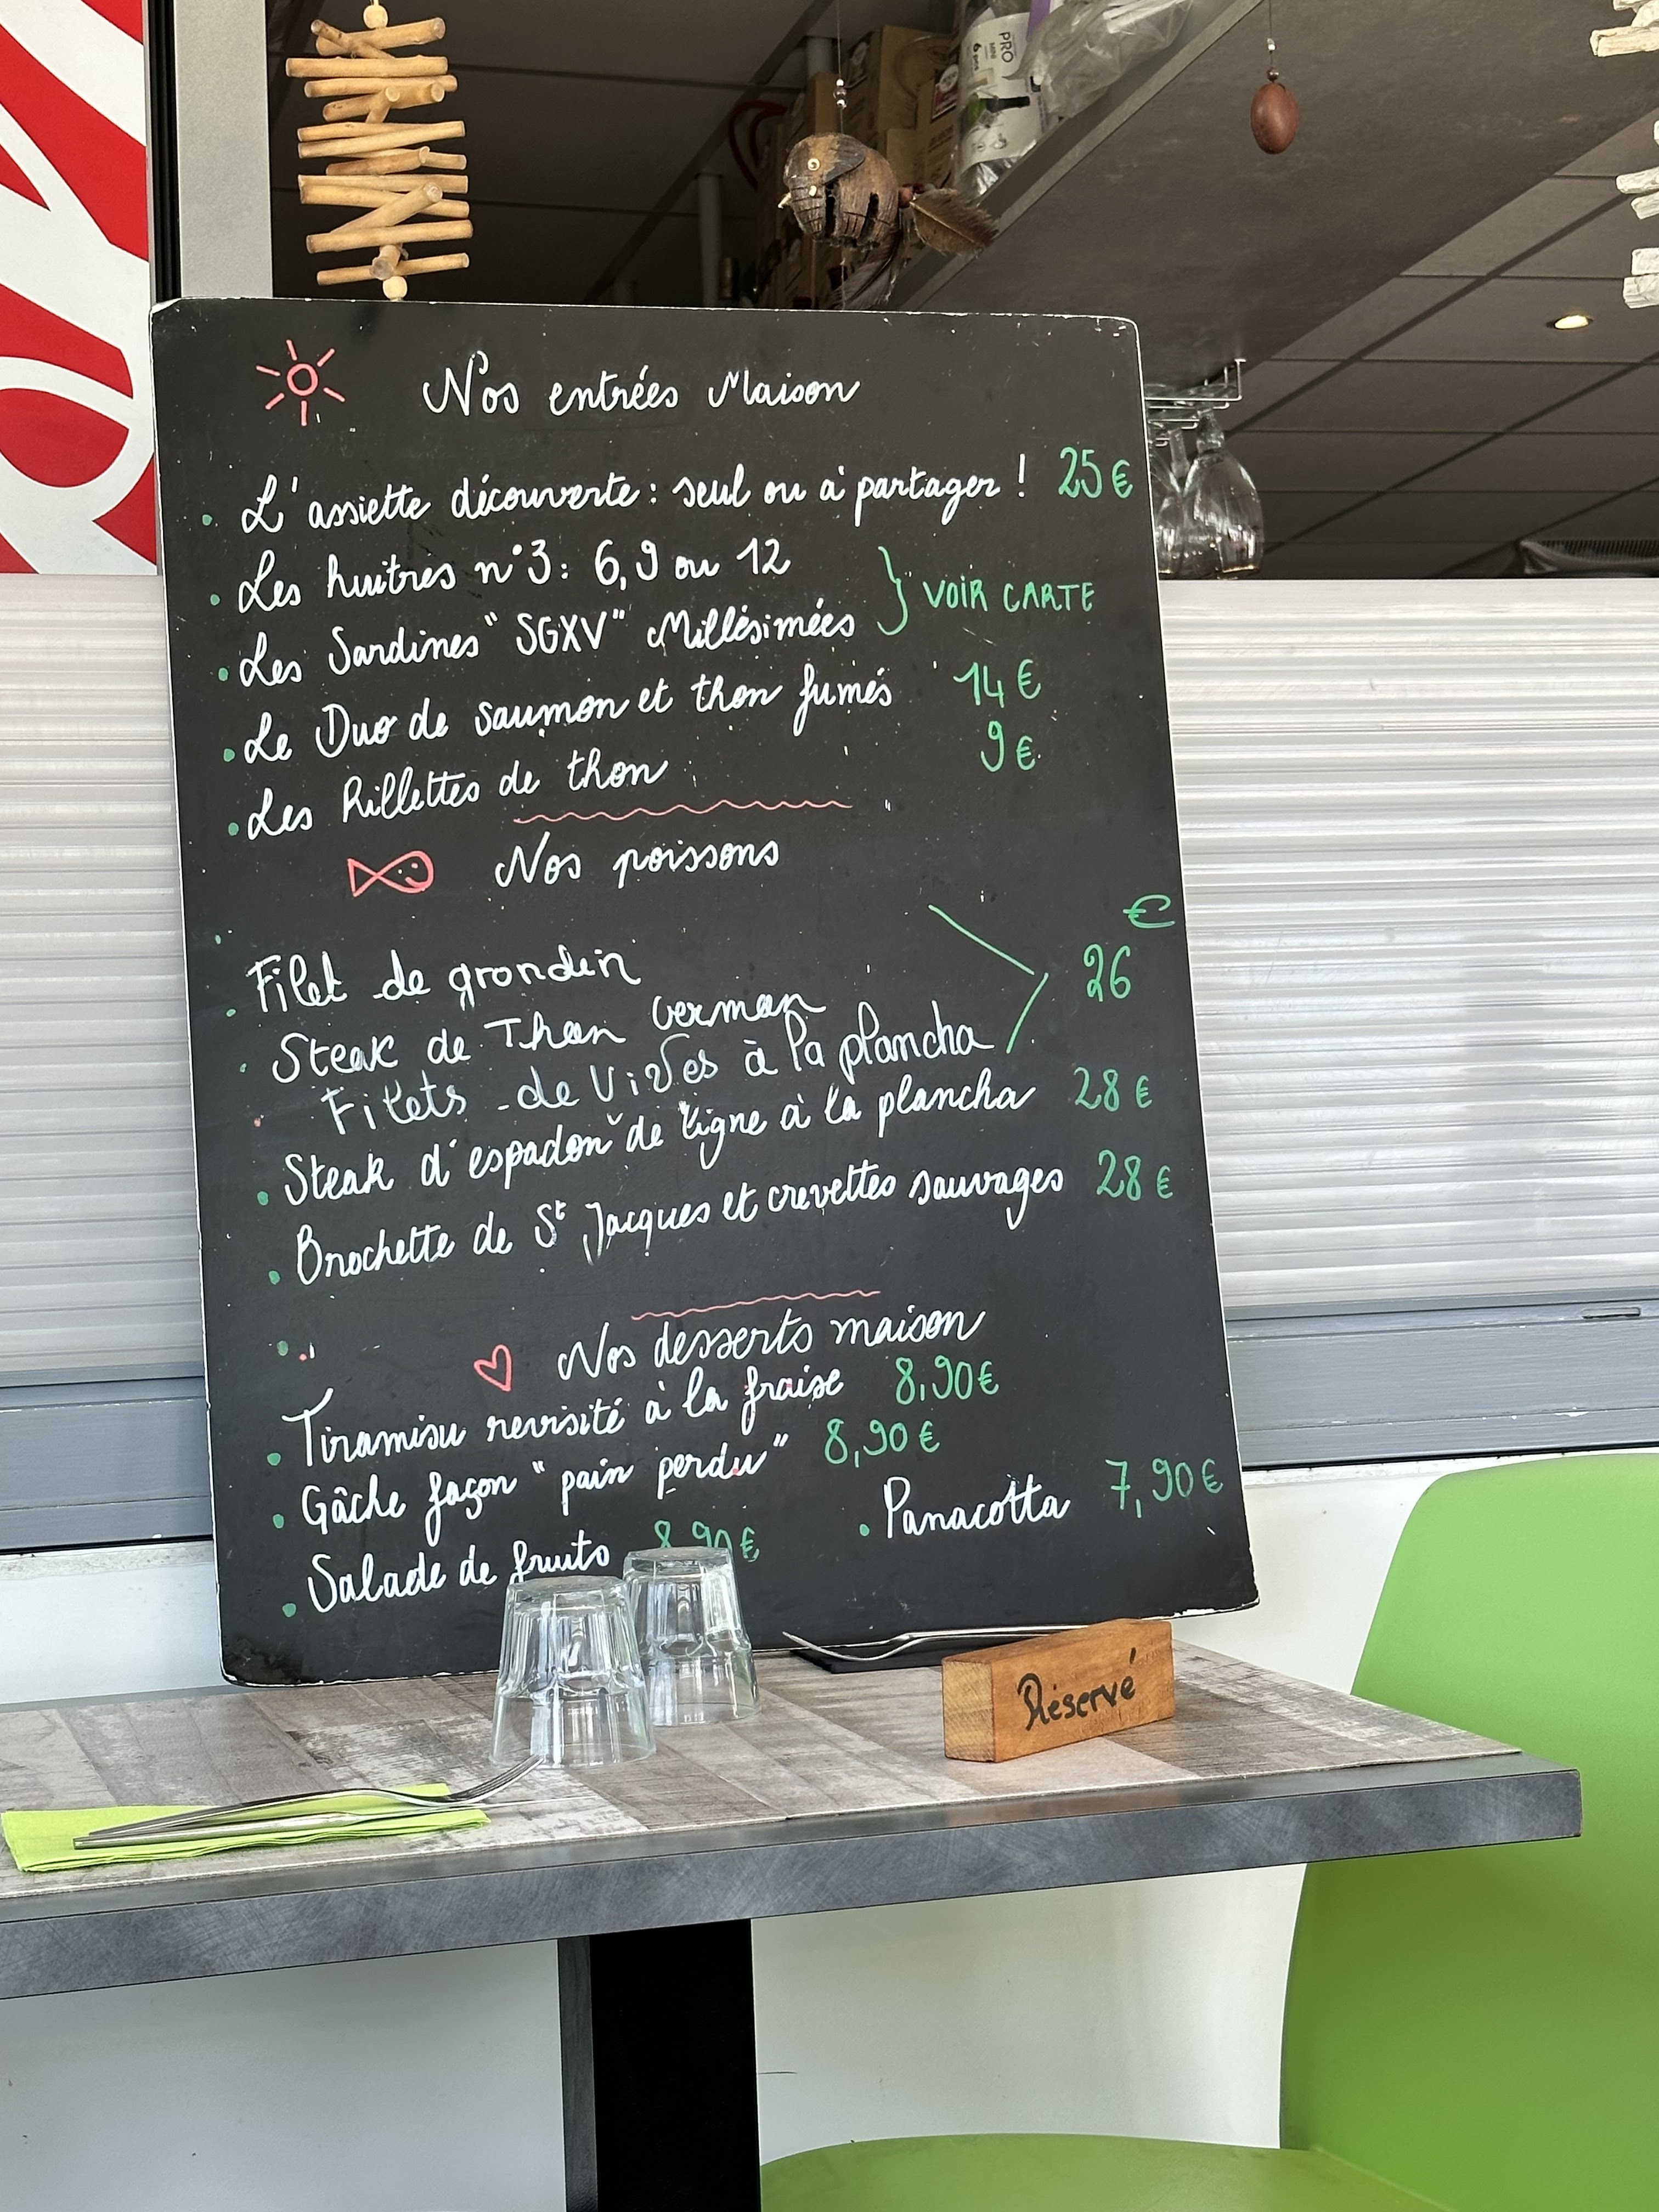 PRO
Nos entrées Maison
L'assiette découverte : seul ou à partager ! 25 €
Les huitres n°3 : 6, 9 ou 12
VOIR CARTE
Les Sardines "SGXV" Millésimées
Le Duo de saumon et thon fumés 14 €
Les Rillettes de thon 9 €
Nos poissons
€
Filet de grondin 26
Steak de Thon German
Filets de Vives à la plancha
Steak d'espadon "de ligne à la plancha 28 €
Brochette de St Jacques et crevettes sauvages 28 €
Nos desserts maison
Tiramisu revisité à la fraise 8,90 €
Gâche façon "pain perdu" 8,90 €
Panacotta 7,90 €
Salade de fruits 8,90 €
Réservé